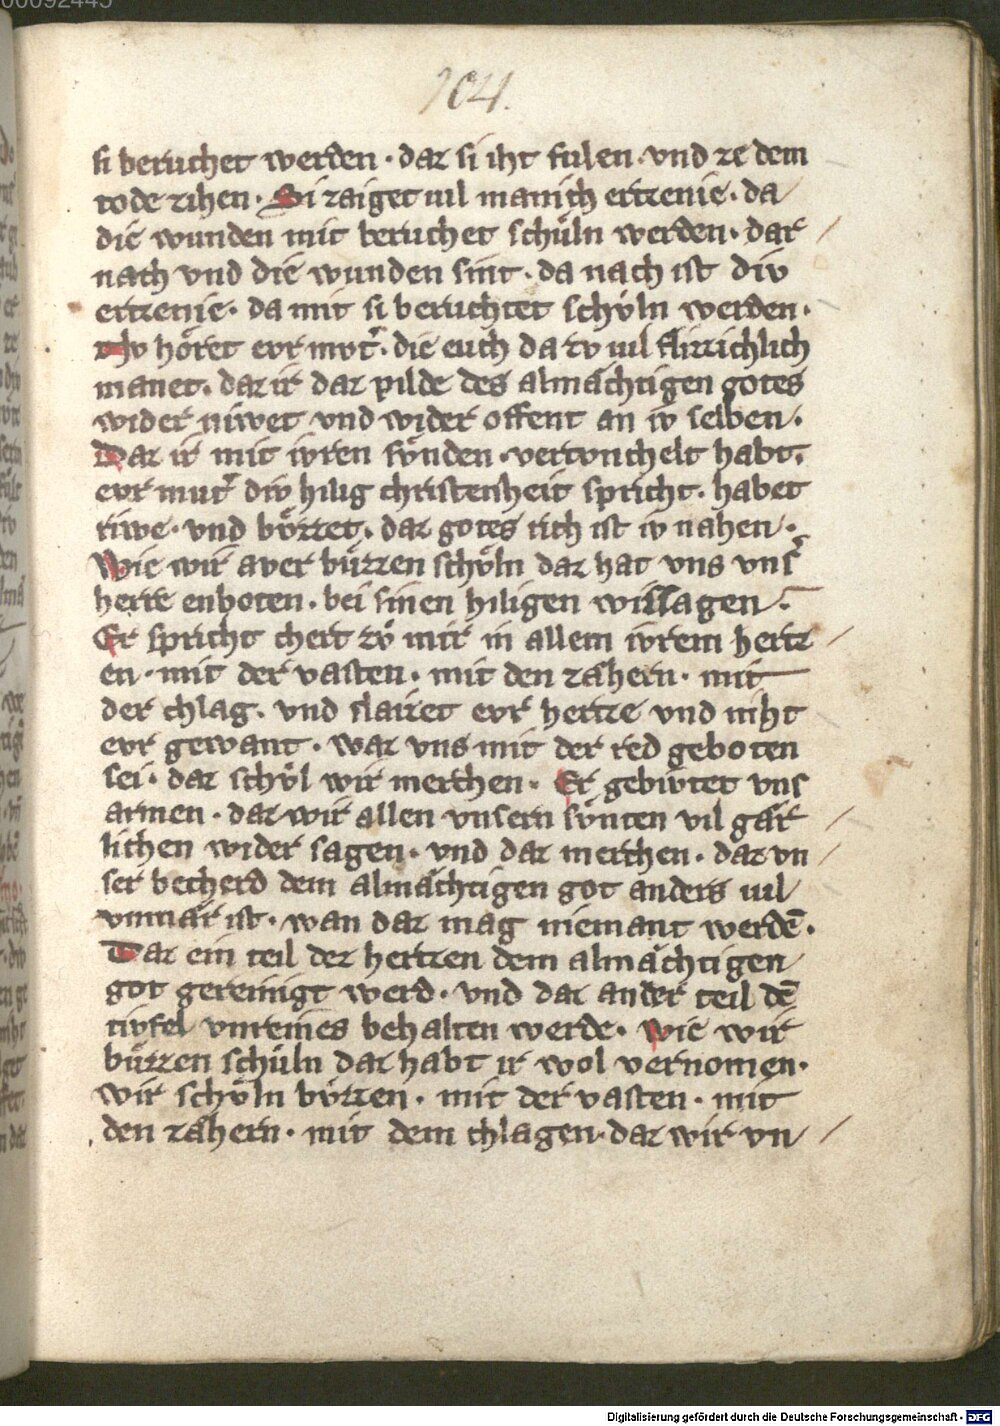 00092445
104.
si beruchet werden · daz si iht fulen · vnd ze dem
tode zihen · Si zaiget uil manich ertzenie · da
die wunden mit beruchet schuͤln werden · dar
nach vnd die wunden sint · da nach ist div
ertzenie · da mit si beruchtet schvln werden ·
hoͤret evr mvt̉ · die euch da zv uil flizzichlich
manet · daz ir daz pilde des almaͤchtigen gotes
wider niwet vnd wider offent an iv selben ·
Daz ir mit ivren sv́nden · vertvnchelt habt ·
evr mut̉ div hilig christenheit spricht · habet
riwe · vnd bvͤzzet · daz gotes rich ist iv nahen ·
Wie wir aver buͤzzen schoͤln daz hat vns vns̉
herre enboten · bei sinen hiligen wissagen ·
Er spricht chert zv̊ mir in allem ivrem hertz
en · mit der vasten · mit den zahern · mit
der chlag · vnd slaizet evr hertze vnd niht
evr gewant · waz vns mit der red geboten
sei · daz schvͤl wir merchen · Er gebivtet vns
armen · daz wir allen vnsern sv́nten vil gaͤr
lichen wider sagen · vnd daz merchen · daz vn
ser becherd dem almaͤchtigen got anders uil
vnmaͤr ist · wan daz mag niemant werdē ·
Daz ein teil dez hertzen dem almaͤchtigen
got gereinigt werd · vnd daz ander teil dē
tivfel vnreines behalten werde · Wie wir
buͤzzen schuͤln daz habt ir wol vernomen ·
wir schoͤln bvͤzzen · mit der vasten · mit
den zaͤhern · mit dem chlagen · daz wir vn
Digitalisierung gefördert durch die Deutsche Forschungsgemeinschaft · DFG